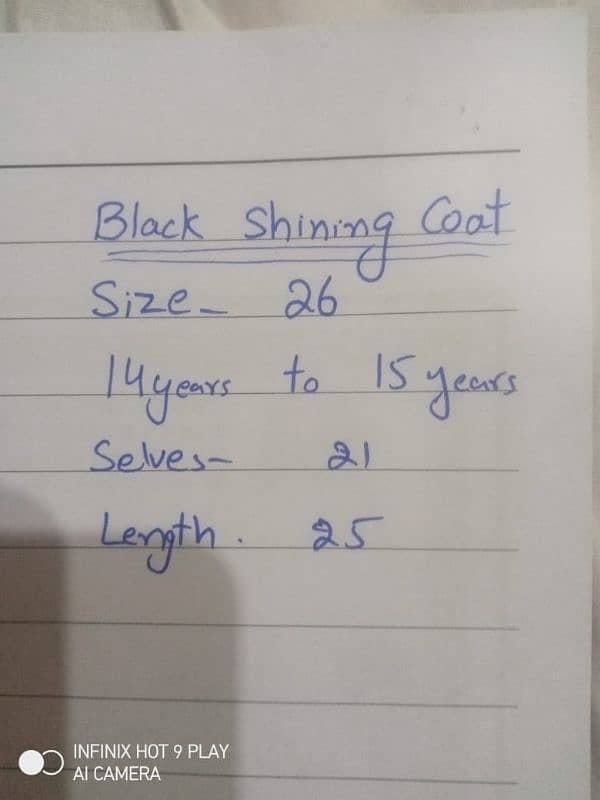 Black Shining Coat
Size - 26
14 years to 15 years
Selves - 21
Length . 25
INFINIX HOT 9 PLAY
AI CAMERA